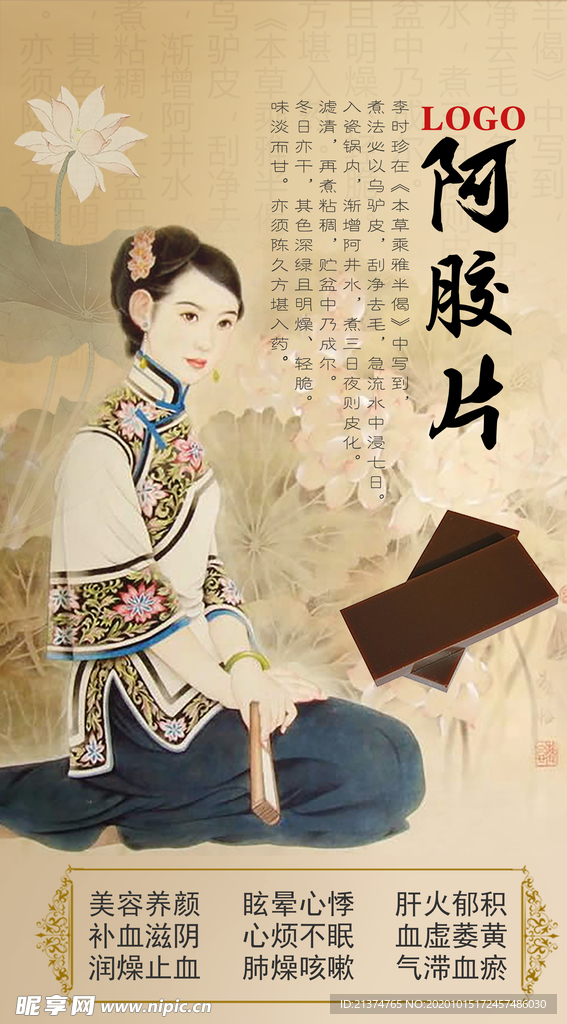 LOGO
阿胶片
李时珍在《本草乘雅半偈》中写到，
煮法必以乌驴皮，刮净去毛，急流水中浸七日。
入瓷锅内，渐增阿井水，煮三日夜则皮化。
滤清，再煮粘稠，贮盆中乃成尔。
冬日亦干，其色深绿且明燥、轻脆。
味淡而甘。亦须陈久方堪入药。
美容养颜 眩晕心悸 肝火郁积
补血滋阴 心烦不眠 血虚萎黄
润燥止血 肺燥咳嗽 气滞血瘀
昵享网 www.nipic.cn
ID:21374765 NO:20201015172457486030